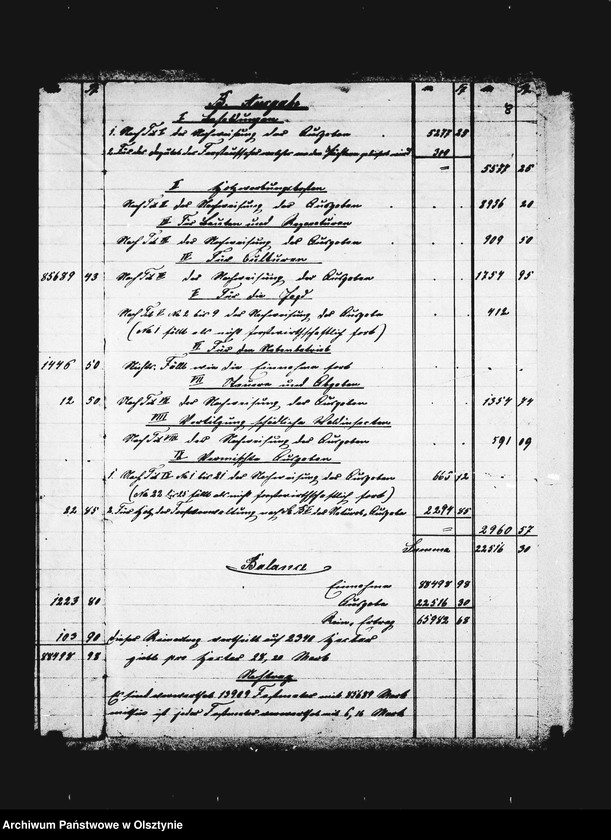 8
B. Ausgabe
I Besoldungen
1. Nach Tit. I. der Nachweisung der Ausgaben 5277 25
2. Für 300
= 5577 25
II Holzwerbungskosten
Nach Tit. II. der Nachweisung der Ausgaben 8936 20
III Für Bauten und Reparaturen
Nach Tit. III. der Nachweisung der Ausgaben 909 50
IV Für Culturen
85689 43 Nach Tit. IV. der Nachweisung der Ausgaben 1754 95
V Für die Jagd
Nach Tit. V. No 2 bis 9 der Nachweisung der Ausgaben 412
(No 1 fällt als nicht forstwirthschaftlich fort)
VI Für den Nebenbetrieb
1446 50 Nichts. Fällt wie die Einnahme fort
VII Steuern und Abgaben
12 50 Nach Tit. VII. der Nachweisung der Ausgaben 1354 74
VIII Vertilgung schädlicher Waldinsecten
Nach Tit. VIII. der Nachweisung der Ausgaben 591 09
IX Vermischte Ausgaben
1. Nach Tit. IX. No 1 bis 21 der Nachweisung der Ausgaben 665 12
(No 22 bis 25 fällt als nicht forstwirthschaftlich fort)
22 85 2. Für Holz der Forstverwaltung nach der Natural-Ausgabe 2294 85
= 2960 57
Summa 22516 30
Balance
Einnahme 88498 98
1223 80 Ausgabe 22516 30
Rein-Ertrag 65982 68
103 90 Dieser Reinertrag vertheilt auf 2340 Hectar
88498 98 giebt pro Hectar 28,20 Mark
Nachtrag
Es sind verwerthet 13909 Festmeter mit 85689 Mark
mithin ist jeder Festmeter verwerthet mit 6,16 Mark
Archiwum Państwowe w Olsztynie